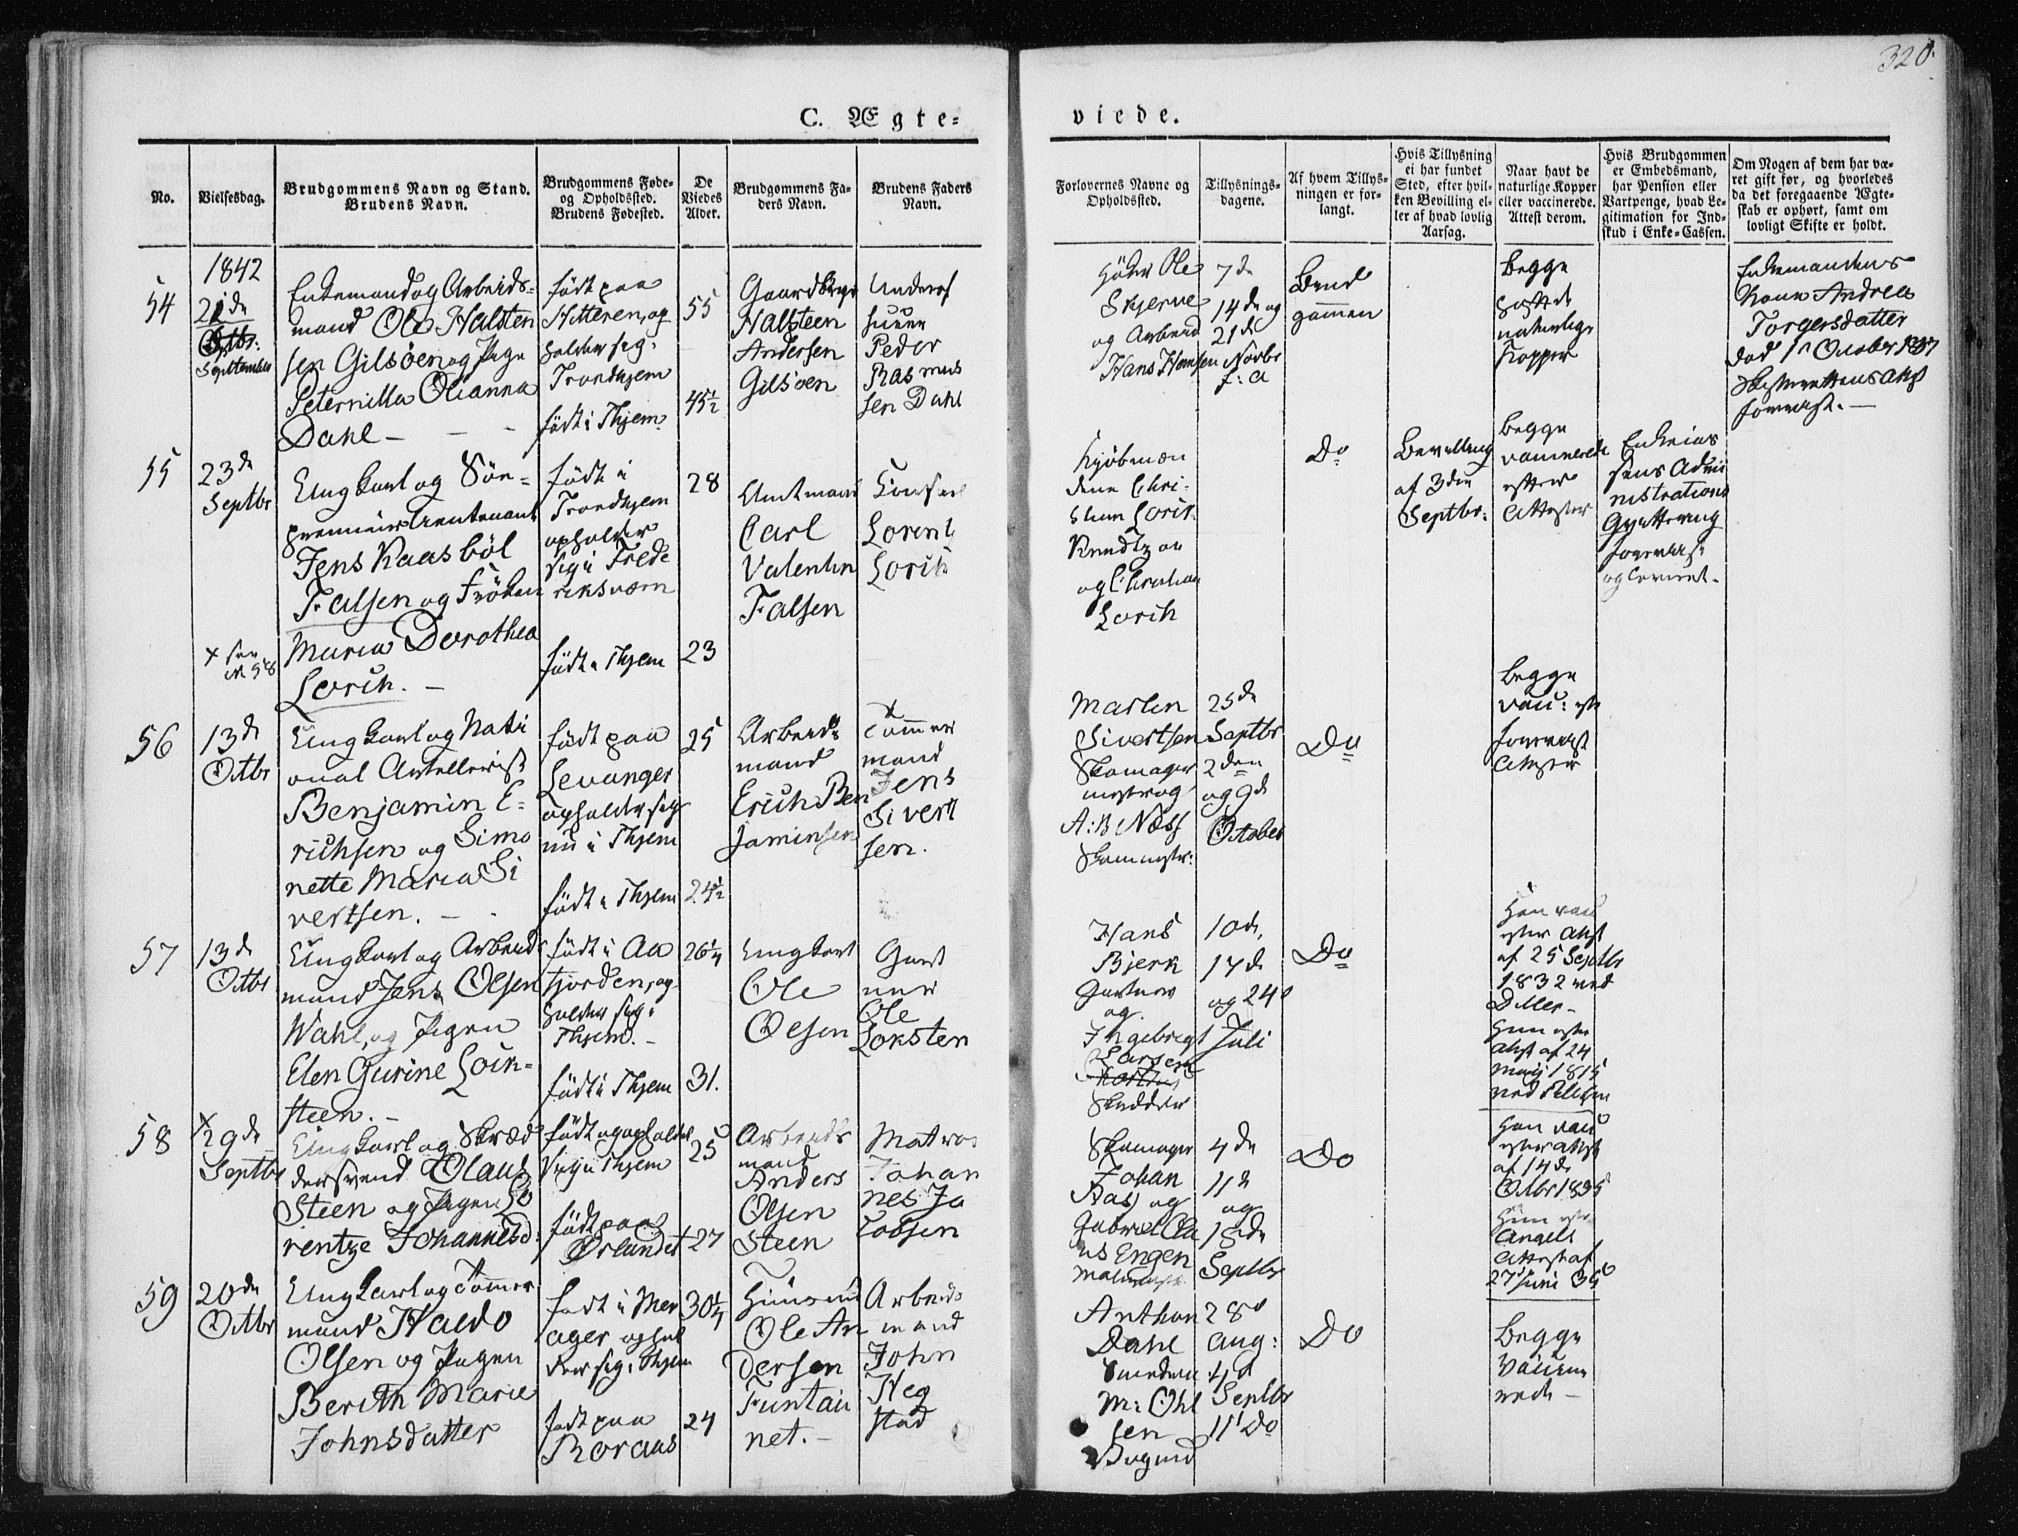 320.
C. Ægte-
viede.
No.
Vielsesdag.
Brudgommens Navn og Stand.
Brudens Navn.
Brudgommens Føde-
og Opholdssted.
Brudens Fødested.
De
Viedes
Alder.
Brudgommens Fa-
ders Navn.
Brudens Faders
Navn.
Forlovernes Navne og
Opholdssted.
Tillysnings-
dagene.
Af hvem Tillys-
ningen er for-
langt.
Hvis Tillysning
ei har fundet
Sted, efter hvil-
ken Bevilling el-
ler af hvad lovlig
Aarsag.
Naar havt de
naturlige Kopper
eller vaccinerede.
Attest derom.
Hvis Brudgommen
er Embedsmand,
har Pension eller
Vartpenge, hvad Le-
gitimation for Ind-
skud i Enke-Cassen.
Om Nogen af dem har væ-
ret gift før, og hvorledes
da det foregaaende Ægte-
skab er ophørt, samt om
lovligt Skifte er holdt.
1842
54
Septembr
Enkemand og Arbeids-
mand Ole Halsten
sen Gilsøen og Pige
Peternilla Olianna
Dahl
født paa
Hitteren, op
holder sig i
Trondhjem
født i Thjem
55
45½
Gaardbruger
Halsteen
Andersen
Gilsøen
Underof
Peder
Rasmus
sen Dahl
Ole
Skjerve
og Arbeid
Hans Hansen
7de
14de og
21de
Novbr
f: a
Brud
gommen
Begge
havt de
naturlige
Kopper
Enkemandens
Kone Andrea
Torgersdatter
død October 1837
Skifterettens Attest
foreviist.
55
23de
Septbr
Ungkarl og Sön-
premierlieutenant
Jens Kaasböl
Falsen og Fröken
Maria Dorothea
Lorck.
født i
Trondhjem
opholder
sig i Frede
riksværn
født i Thjem
28
23
Amtmand
Carl
Valentin
Falsen
Consul
Lorentz
Lorck
Kjöbmæn
dene Chri-
stian Lorck
Knudtzon
og Christian
Lorck
Do
Bevilling
af 3die
Septbr:
Begge
vaccinerede
efter
Attester
Enkekas
sens Admi
nistrations
foreviist
og leveret.
× see
N 58
56
13de
Octbr
Ungkarl og Nati
onal Artellerist
Benjamin E-
richsen og Simo
nette Maria Si
vertsen.
født paa
Levanger
opholder sig
nu i Thjem
født i Thjem
25
24½
Arbeids
mand
Erich Ben
jaminsen
Tømmer
mand
Jens
Sivert
sen.
Marten
Sivertsen
Skomager
mester og
A: B Næss
Skommester:
25de
Septbr
2den
og 9de
October
Do
Begge
vacc: efter
foreviist
Attester
57
13de
Octbr
Ungkarl og Arbeids
mand Jens Olsen
Wahl, og Pigen
Elen Gurine Lock-
steen.
født i Aa
fjorden, op
holder sig i
Thjem.
født i Thjem
26¼
31.
Ungkarl
Ole
Olsen
Gart
ner
Ole
Loksten
Hans
Bjerk
Gartner
og
Ingebrigt
Larsen
Skredder
10de,
17de
og 24d
Juli
Do
Han vacc
efter Attst
af 25 Septbr
1832 ved
Diller
Hun efter
Attst af 24
Maij 1815
58
×29de
Septbr
Ungkarl og Skræd
dersvend Olaus
Steen og Pigen Lo
rentze Johannesd:
født og opholder
sig i Thjem
født paa
Ørlandet
25
27
Arbeids
mand
Anders
Olsen
Steen
Matros
Johan
nes Ja
cobsen
Skomager
Johan
Aas og
Gabriel Cla
us Engen
4de
11te
og
18de
Septbr
Do
Han vacc
efter Attst
af 14de
Octbr 1835
Hun efter
Angels
Attest af
27 Juni 35
59
20de
Octbr
Ungkarl og Tømmer
mand Haldo
Olsen og Pigen
Berith Marie
Johnsdatter
født i Mer
ager ophol
der sig i Thjem
født paa
Roraas
30¼
24
Huusmd
Ole An
dersen
Funtau
net.
Arbeids
mand
John
Heg
stad
Anthon
Dahl
M: Ohl
sen
28d
Aug:
4d
Septbr
11 Do
Do
Begge
vaccine
rede